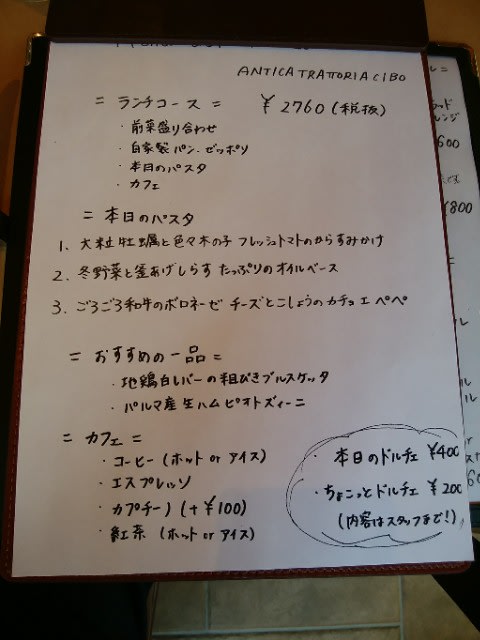 ANTICA TRATTORIA CIBO
= ランチコース = ¥2760(税抜)
・前菜盛り合わせ
・自家製パン・ゼッポリ
・本日のパスタ
・カフェ
= 本日のパスタ
1. 大粒牡蠣と色々木の子 フレッシュトマトのからすみかけ
2. 冬野菜と釜あげしらす たっぷりのオイルベース
3. ごろごろ和牛のボロネーゼ チーズとこしょうのカチョエペペ
= おすすめの一品 =
・地鶏白レバーの粗びきブルスケッタ
・パルマ産生ハム ピオトズィーニ
= カフェ =
・コーヒー (ホット or アイス)
・エスプレッソ
・カプチーノ (+¥100)
・紅茶 (ホット or アイス)
・本日のドルチェ ¥400
・ちょこっとドルチェ ¥200
(内容はスタッフまで!)